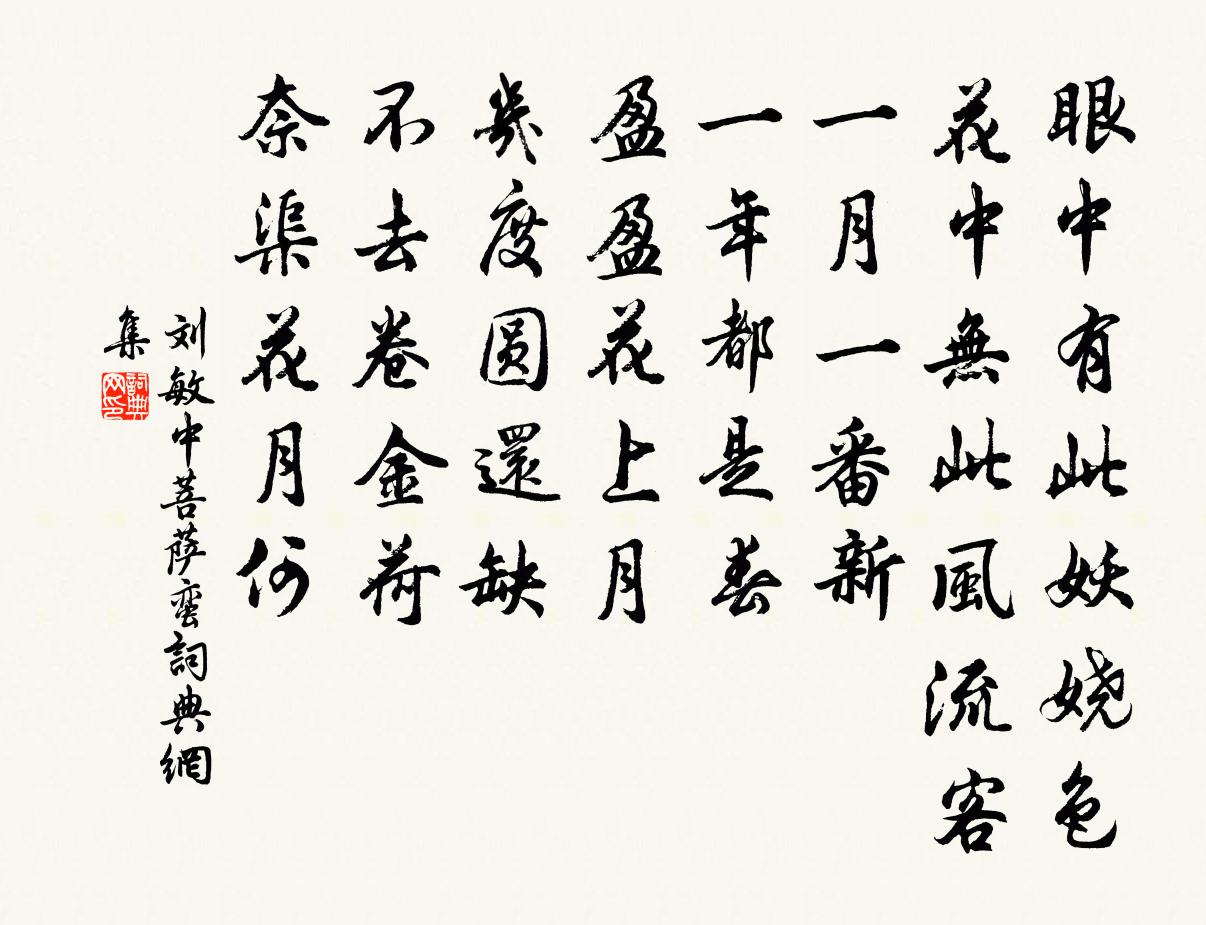 眼中有此妖娆色
花中無此風流客
一月一番新
一年都是春
盈盈花上月
幾度圆還缺
不去卷金荷
奈渠花月何
刘敏中菩萨蛮詞典網
集
詞典網印